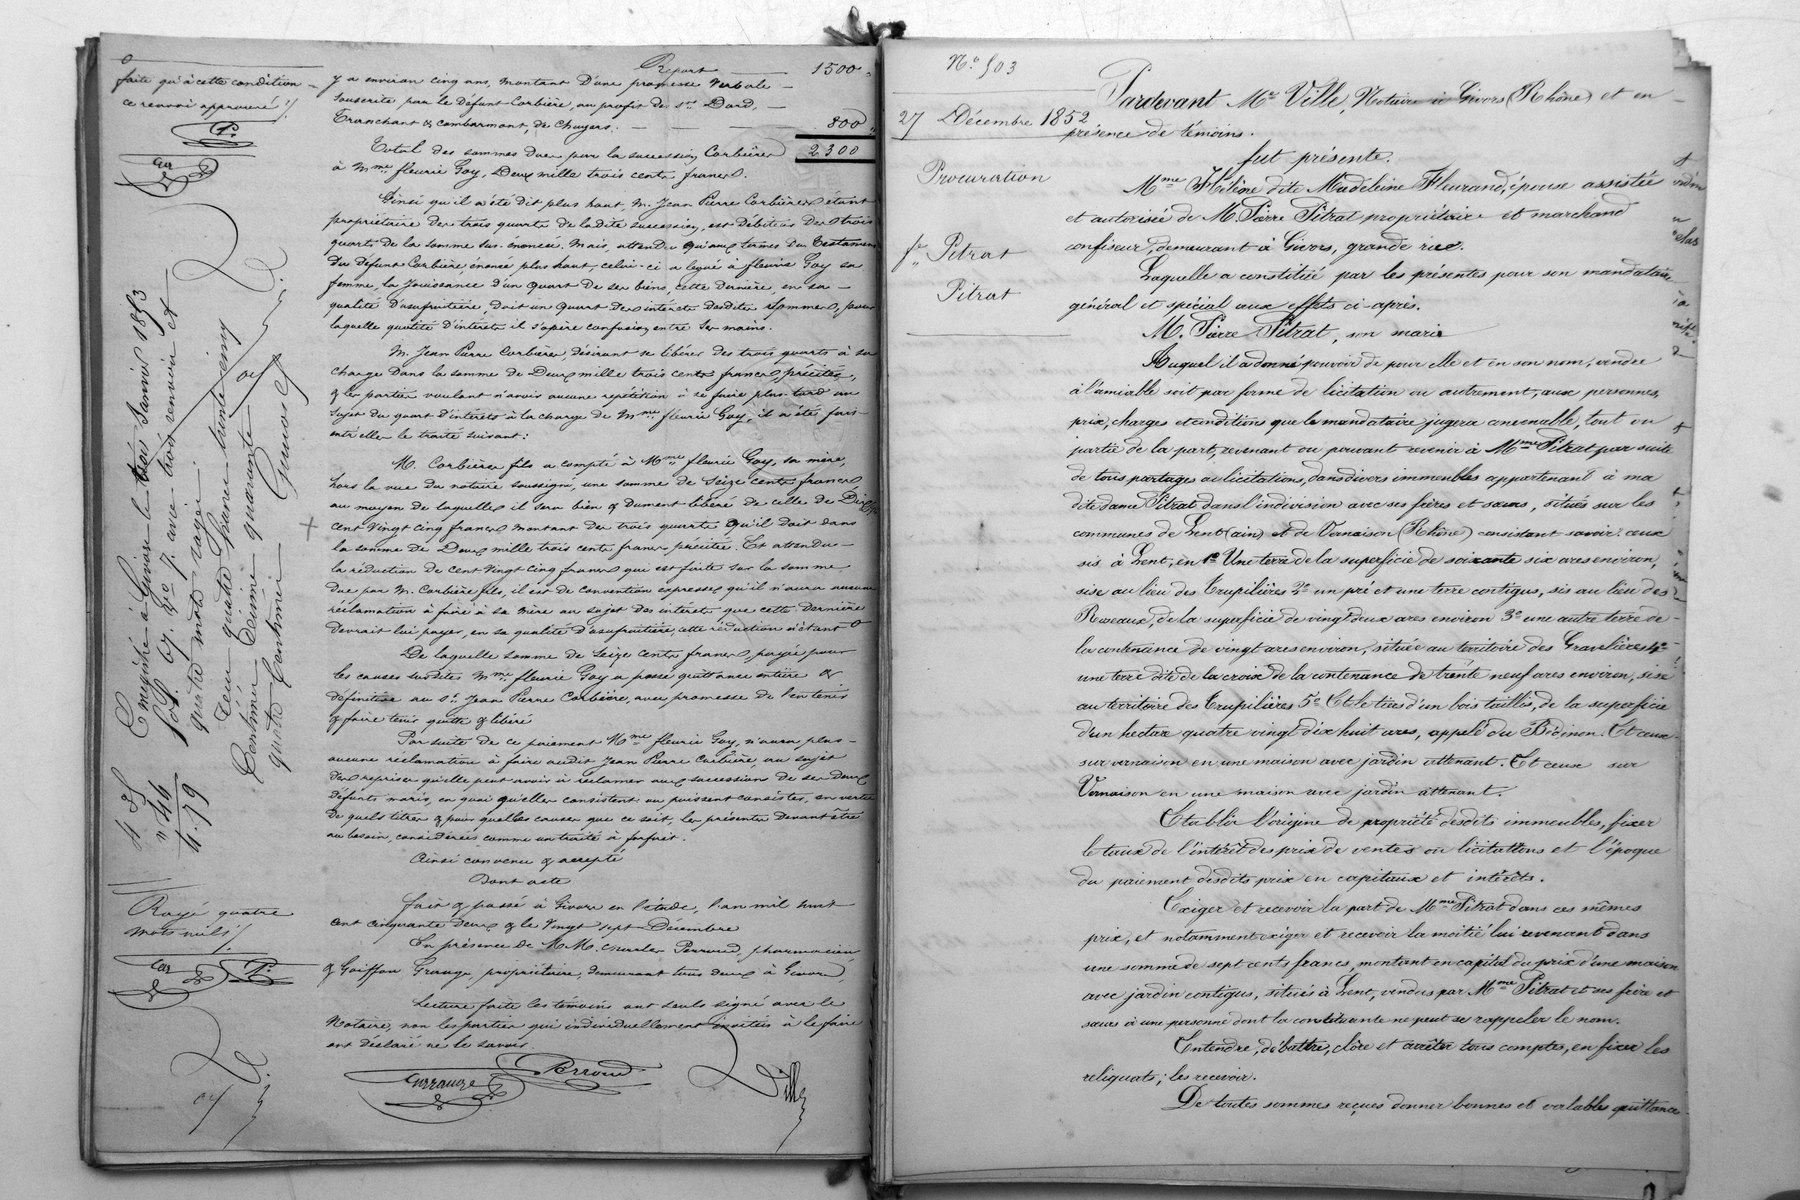 faite qu'à cette condition
ce renvoi approuvé ./.
Enregistré à Givors le trois Janvier 1853
fol. 67. Ro c. 7. avec trois renvois et
quatre mots rayés.
Reçu quatre francs
centimes Décime quarante
quatre Centimes
4 "
" 44
4.79
Rayé quatre
mots nuls ./.
Report 1500 "
y a environ cinq ans, montant d'une promesse verbale
souscrite par le défunt Corbière, au profit de Sr. Dard,
Tranchant & combarmont, de Chuyers. 800 "
Total des sommes dues par la succession Corbière 2300
à Mme fleurie Goy, Deux mille trois cents francs.
Ainsi qu'il a été dit plus haut, M. Jean Pierre Corbière, étant
propriétaire des trois quarts de ladite succession, est débiteur des trois
quarts de la somme sus-énoncée. Mais attendu qu'aux termes du testament
du défunt Corbière énoncé plus haut, celui-ci a légué à fleurie Goy sa
femme, la jouissance d'un quart de ses biens, cette dernière, en sa
qualité d'usufruitière, doit un quart des intérêts desdites sommes, pour
laquelle quotité d'intérêts il s'opère confusion entre ses mains.
M. Jean Pierre Corbière, désirant se libérer des trois quarts à sa
charge dans la somme de Deux mille trois cents francs précitée,
& les parties voulant n'avoir aucune répétition à se faire plus tard au
sujet du quart d'intérêts à la charge de Mme fleurie Goy, il a été fait
entr'elles le traité suivant :
M. Corbière fils a compté à Mme fleurie Goy, sa mère,
hors la vue du notaire soussigné, une somme de Seize cents francs
au moyen de laquelle il sera bien & dument libéré de celle de Dix sept
cent vingt cinq francs montant des trois quarts qu'il doit dans
la somme de Deux mille trois cents francs précitée. Et attendu
la réduction de cent vingt cinq francs qui est faite sur la somme
due par M. Corbière fils, il est de convention expresse qu'il n'aura aucune
réclamation à faire à sa mère au sujet des intérêts que cette dernière
devrait lui payer, en sa qualité d'usufruitière, cette réduction n'étant
De laquelle somme de Seize cents francs, payée pour
les causes susdites, Mme fleurie Goy a passé quittance entière &
définitive au Sr. Jean Pierre Corbière, avec promesse de l'en tenir
& faire tenir quitte & libéré
Par suite de ce paiement Mme fleurie Goy, n'aura plus
aucune réclamation à faire audit Jean Pierre Corbière, au sujet
des reprises qu'elle peut avoir à réclamer aux succession de ses deux
défunts maris, en quoi qu'elles consistent ou puissent consister, en vertu
de quels titres & pour quelles causes que ce soit, les présentes devant être
au besoin, considérées comme un traité à forfait.
Ainsi convenu & accepté
Dont acte
fait & passé à Givors en l'étude, l'an mil huit
cent cinquante deux & le vingt sept Décembre
En présence de MM. Perroud, pharmacien
& Goiffon Grange, propriétaire, demeurant tous deux à Givors,
Lecture faite les témoins ont seuls signé avec le
Notaire, non les parties qui individuellement invitées à le faire
ont déclaré ne le savoir.
Perroud
Ville
No. 503
27 Décembre 1852
Procuration
fe. Pitrat
Pitrat
Pardevant Me Ville, Notaire à Givors (Rhône) et en
présence de témoins.
fut présente.
Mme Hélène dite Madeleine Fleurand, épouse assistée
et autorisée de M. Pierre Pitrat propriétaire et marchand
confiseur, demeurant à Givors, grande rue.
Laquelle a constitué par les présentes pour son mandataire
général et spécial aux effets ci-après.
M. Pierre Pitrat, son marie
Auquel il a donné pouvoir de pour elle et en son nom, vendre
à l'amiable soit par forme de licitation ou autrement, aux personnes,
prix, charges et conditions que le mandataire jugera convenable, tout ou
partie de la part, revenant ou pouvant revenir à Mme Pitrat par suite
de tous partages ou licitations, dans divers immeubles appartenant à ma
dite dame Pitrat dans l'indivision avec ses frères et sœurs, situés sur les
communes de Lent (ain) et de Vernaison (Rhône) consistant savoir: ceux
sis à Lent, en 1o Une terre de la superficie de soixante six ares environ,
sise au lieu des Trupilières 2o un pré et une terre contigus, sis au lieu des
Roseaux, de la superficie de vingt deux ares environ 3o une autre terre de
la contenance de vingt ares environ, située au territoire des Gravelières 4o
une terre dite de la croix de la contenance de trente neuf ares environ, sise
au territoire des Trupilières 5o Et le tiers d'un bois taillis, de la superficie
d'un hectar quatre vingt dix huit ares, appelé du Bidinon. Et ceux
sur vernaison en une maison avec jardin attenant. Et ceux sur
Vernaison en une maison avec jardin attenant.
Etablir l'origine de propriété desdits immeubles, fixer
le taux de l'intérêt des prix de ventes ou licitations et l'époque
du paiement desdits prix en capitaux et intérêts.
Exiger et recevoir la part de Mme Pitrat dans ces mêmes
prix, et notamment exiger et recevoir la moitié lui revenant dans
une somme de sept cents francs, montant en capital du prix d'une maison
avec jardin contigus, situés à Lent, vendus par Mme Pitrat et ses frère et
sœurs à une personne dont la constituante ne peut se rappeler le nom.
Entendre, débattre, clore et arrêter tous comptes, en fixer les
reliquats; les recevoir.
De toutes sommes reçues donner bonnes et valables quittance